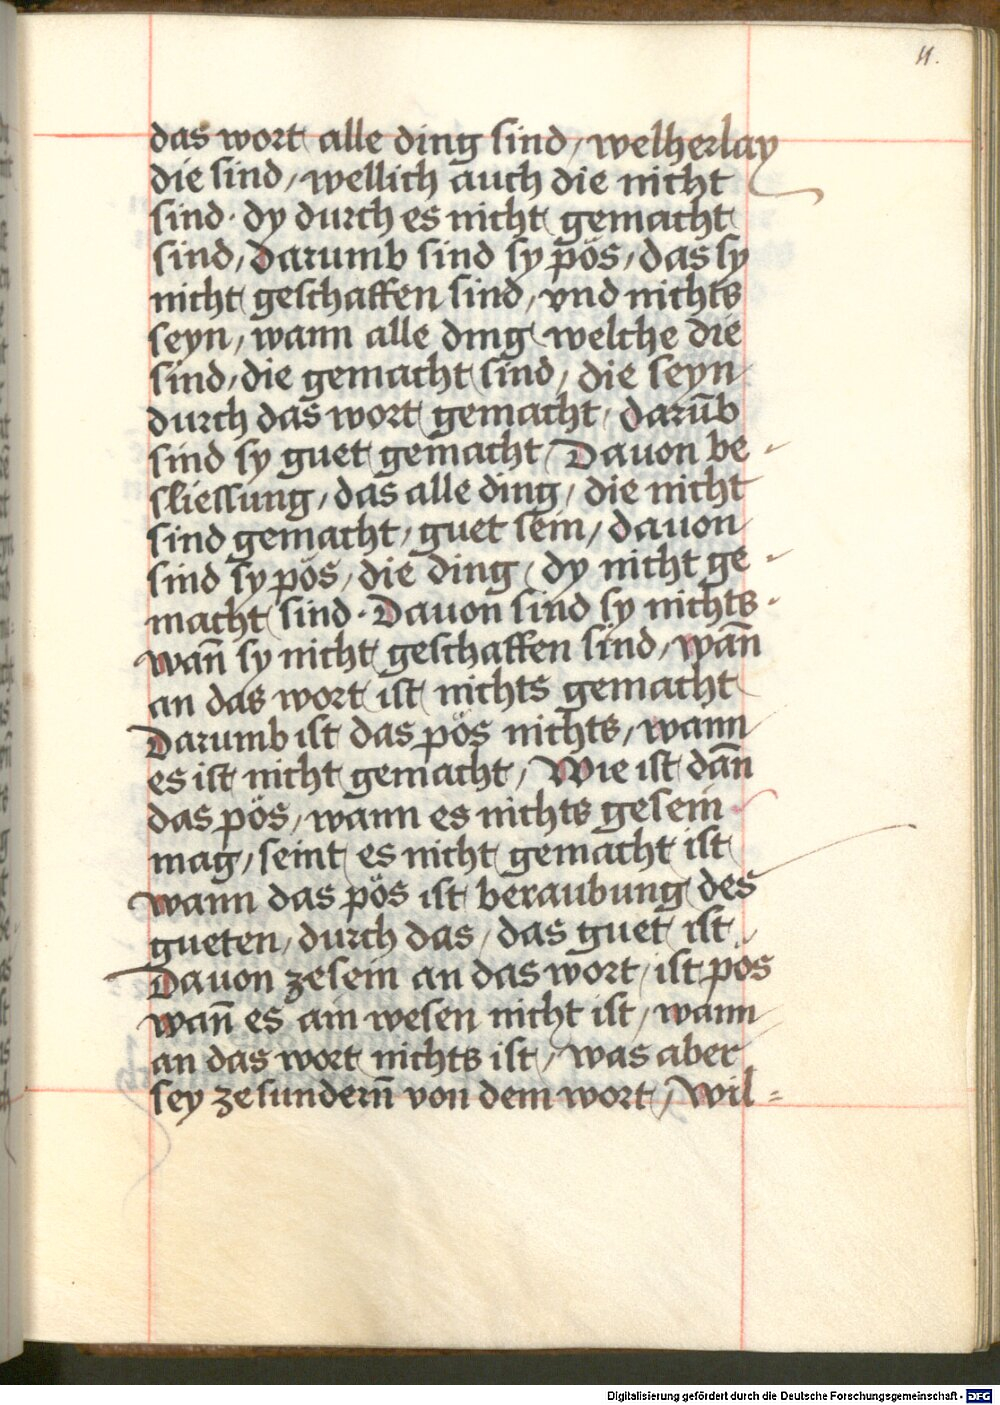 11.
das wort alle ding sind / welherlay
die sind / wellich auch die nicht
sind · dy durch es nicht gemacht
sind / Darumb sind sy pös / das sy
nicht geschaffen sind / vnd nichts
seyn / wann alle ding welche die
sind / die gemacht sind / die seyn
durch das wort gemacht / darūb
sind sy guet gemacht / Dauon be-
sliessung / das alle ding / die nicht
sind gemacht / guet sein / dauon
sind sy pös / die ding / dy nicht ge-
macht sind · Dauon sind sy nichts ·
wan̄ sy nicht geschaffen sind / wān
an das wort ist nichts gemacht
Darumb ist das pös nichts / wann
es ist nicht gemacht / Wie ist dān
das pös / wann es nichts gesein
mag / seint es nicht gemacht ist
wann das pös ist beraubung des
gueten / durch das / das guet ist /
Dauon zesein an das wort / ist pös
wan̄ es ain wesen nicht ist / wann
an das wort nichts ist / was aber
sey zesundern̄ von dem wort / Wil=
Digitalisierung gefördert durch die Deutsche Forschungsgemeinschaft - DFG